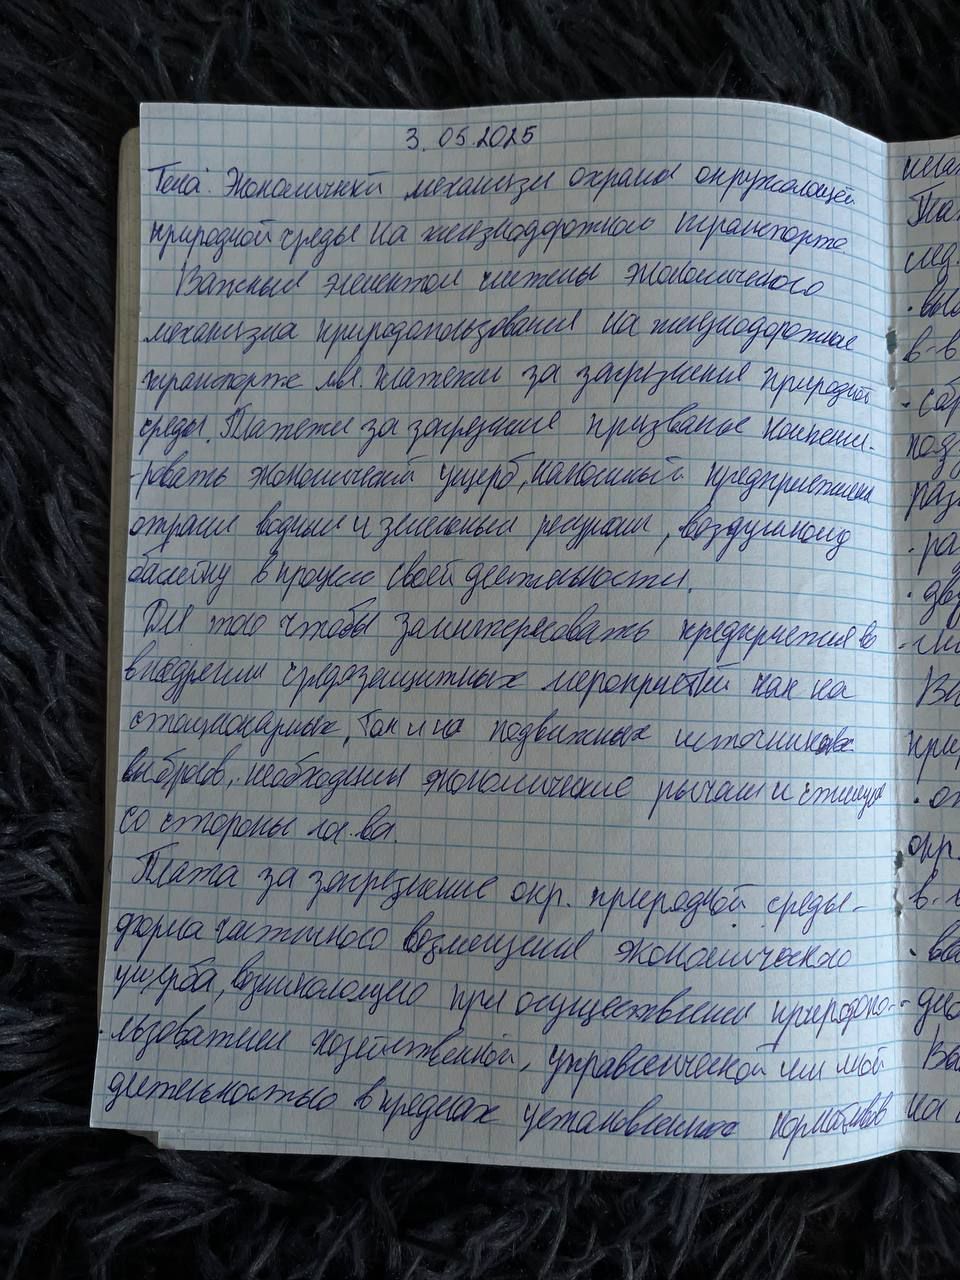 3. 05.2025
Тема: Экономический механизм охраны окружающей
природной среды на железнодорожном транспорте.
Важным элементом системы экономического
механизма природопользования на железнодорожном
транспорте явл. платежи за загрязнение природной
среды. Платежи за загрязнение призваны компенси-
ровать экономический ущерб, наносимый предприятиями
отрасли водным и земельным ресурсам, воздушному
бассейну в процессе своей деятельности.
Для того чтобы заинтересовать предприятия во
внедрении средозащитных мероприятий как на
стационарных, так и на подвижных источниках
выбросов, необходимы экономические рычаги и стимулы
со стороны гос-ва.
Плата за загрязнение окр. природной среды-
форма частичного возмещения экономического
ущерба, возникающего при осуществлении природопо-
льзователем хозяйственной, управленческой или иной
деятельностью в пределах установленных нормативов
Так
мед.
в-в
раз
Вы
при
окр.
в-в
на